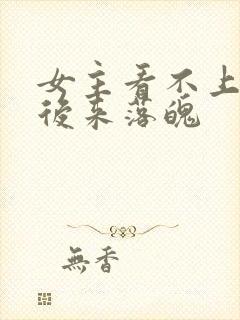 女主看不上
後来落魄
無香